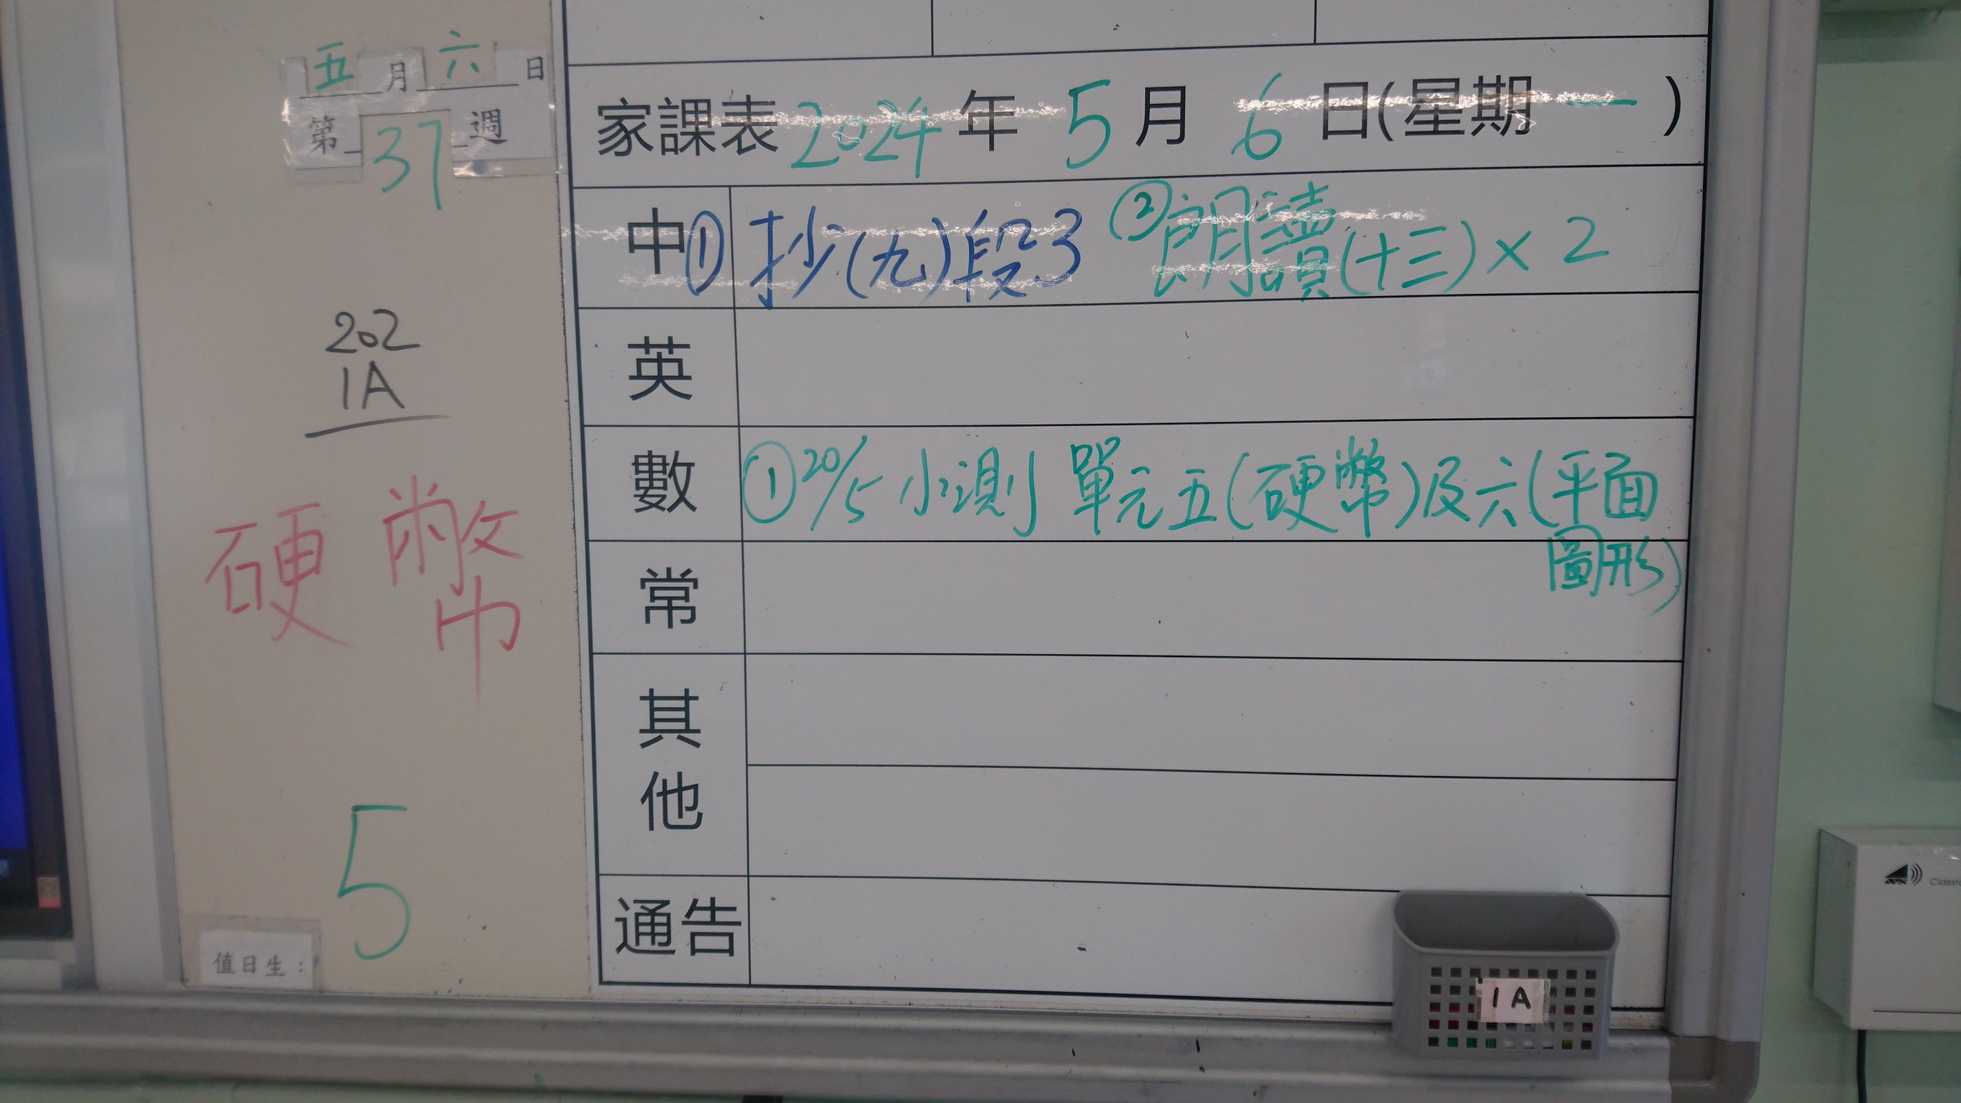 五月六日
第37週
202
1A
硬幣
5
值日生：
家課表2024年5月6日(星期一)
中①抄(九)段3 ②朗讀(十三)×2
英
數①20/5小測 單元五(硬幣)及六(平面
圖形)
常
其他
通告
1A